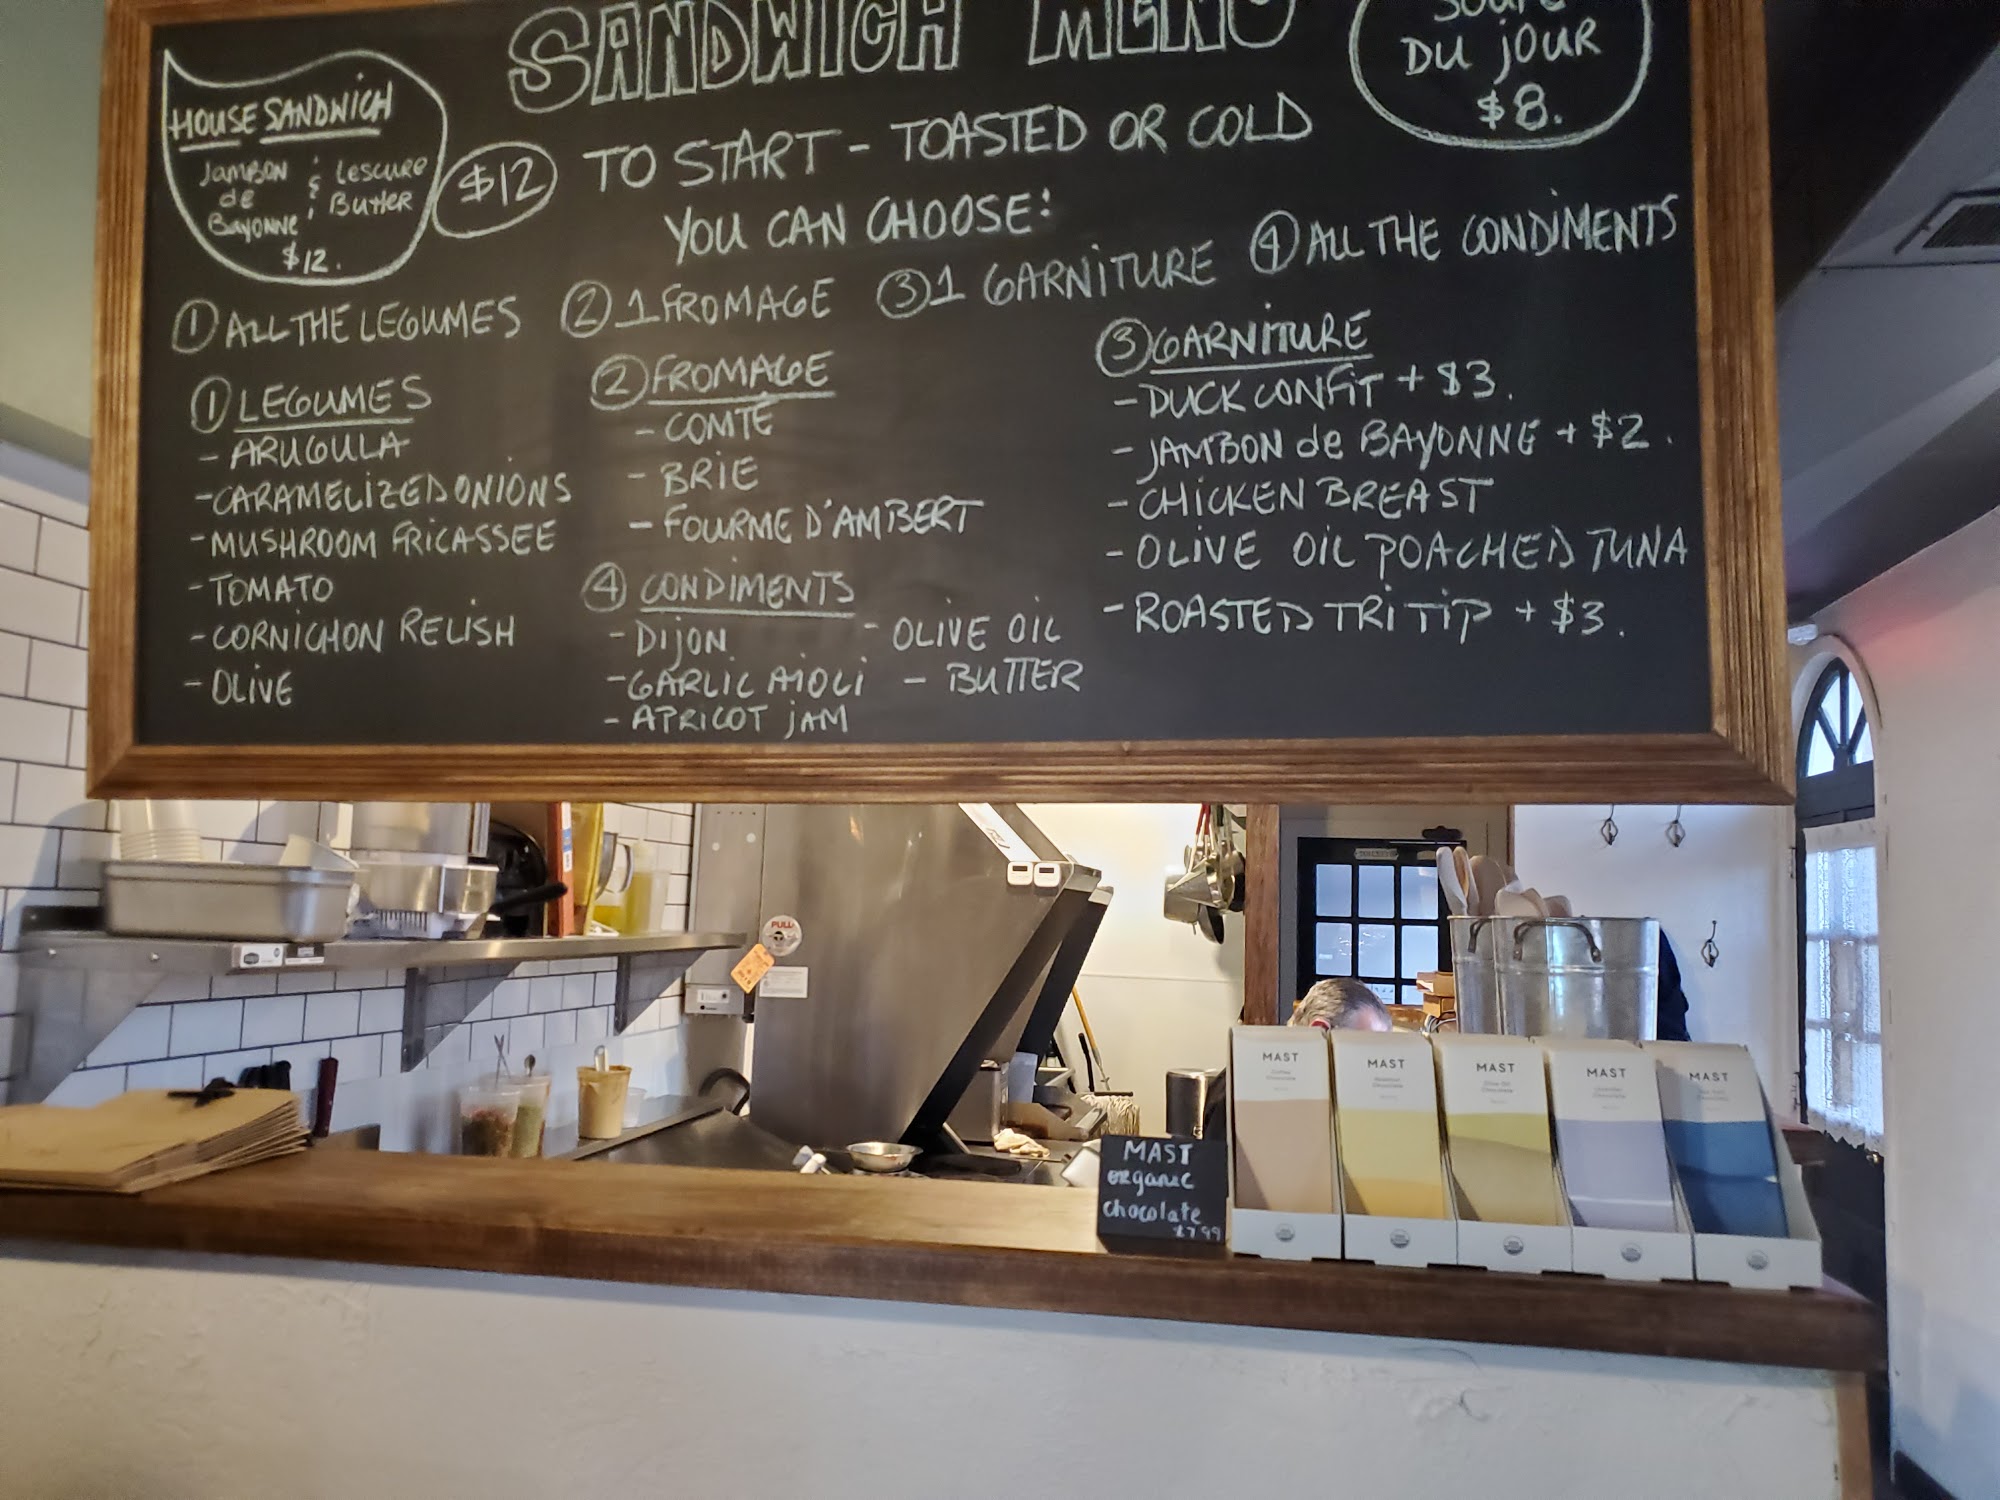 SANDWICH MENU
SOUPE
DU JOUR
$8.
HOUSE SANDWICH
JAMBON & LESCURE
de BUTTER
BAYONNE
$12.
$12 TO START - TOASTED OR COLD
YOU CAN CHOOSE:
① ALL THE LEGUMES ② 1 FROMAGE ③ 1 GARNITURE ④ ALL THE CONDIMENTS
① LEGUMES
- ARUGULA
- CARAMELIZED ONIONS
- MUSHROOM FRICASSEE
- TOMATO
- CORNICHON RELISH
- OLIVE
② FROMAGE
- COMTÉ
- BRIE
- FOURME D'AMBERT
④ CONDIMENTS
- DIJON - OLIVE OIL
- GARLIC AIOLI - BUTTER
- APRICOT JAM
③ GARNITURE
- DUCK CONFIT + $3.
- JAMBON de BAYONNE + $2.
- CHICKEN BREAST
- OLIVE OIL POACHED TUNA
- ROASTED TRI TIP + $3.
PULL
MAST
organic
chocolate
$7.99
MAST
Coffee
Chocolate
MAST
Chocolate
MAST
Olive Oil
Chocolate
MAST
Chocolate
MAST
Chocolate